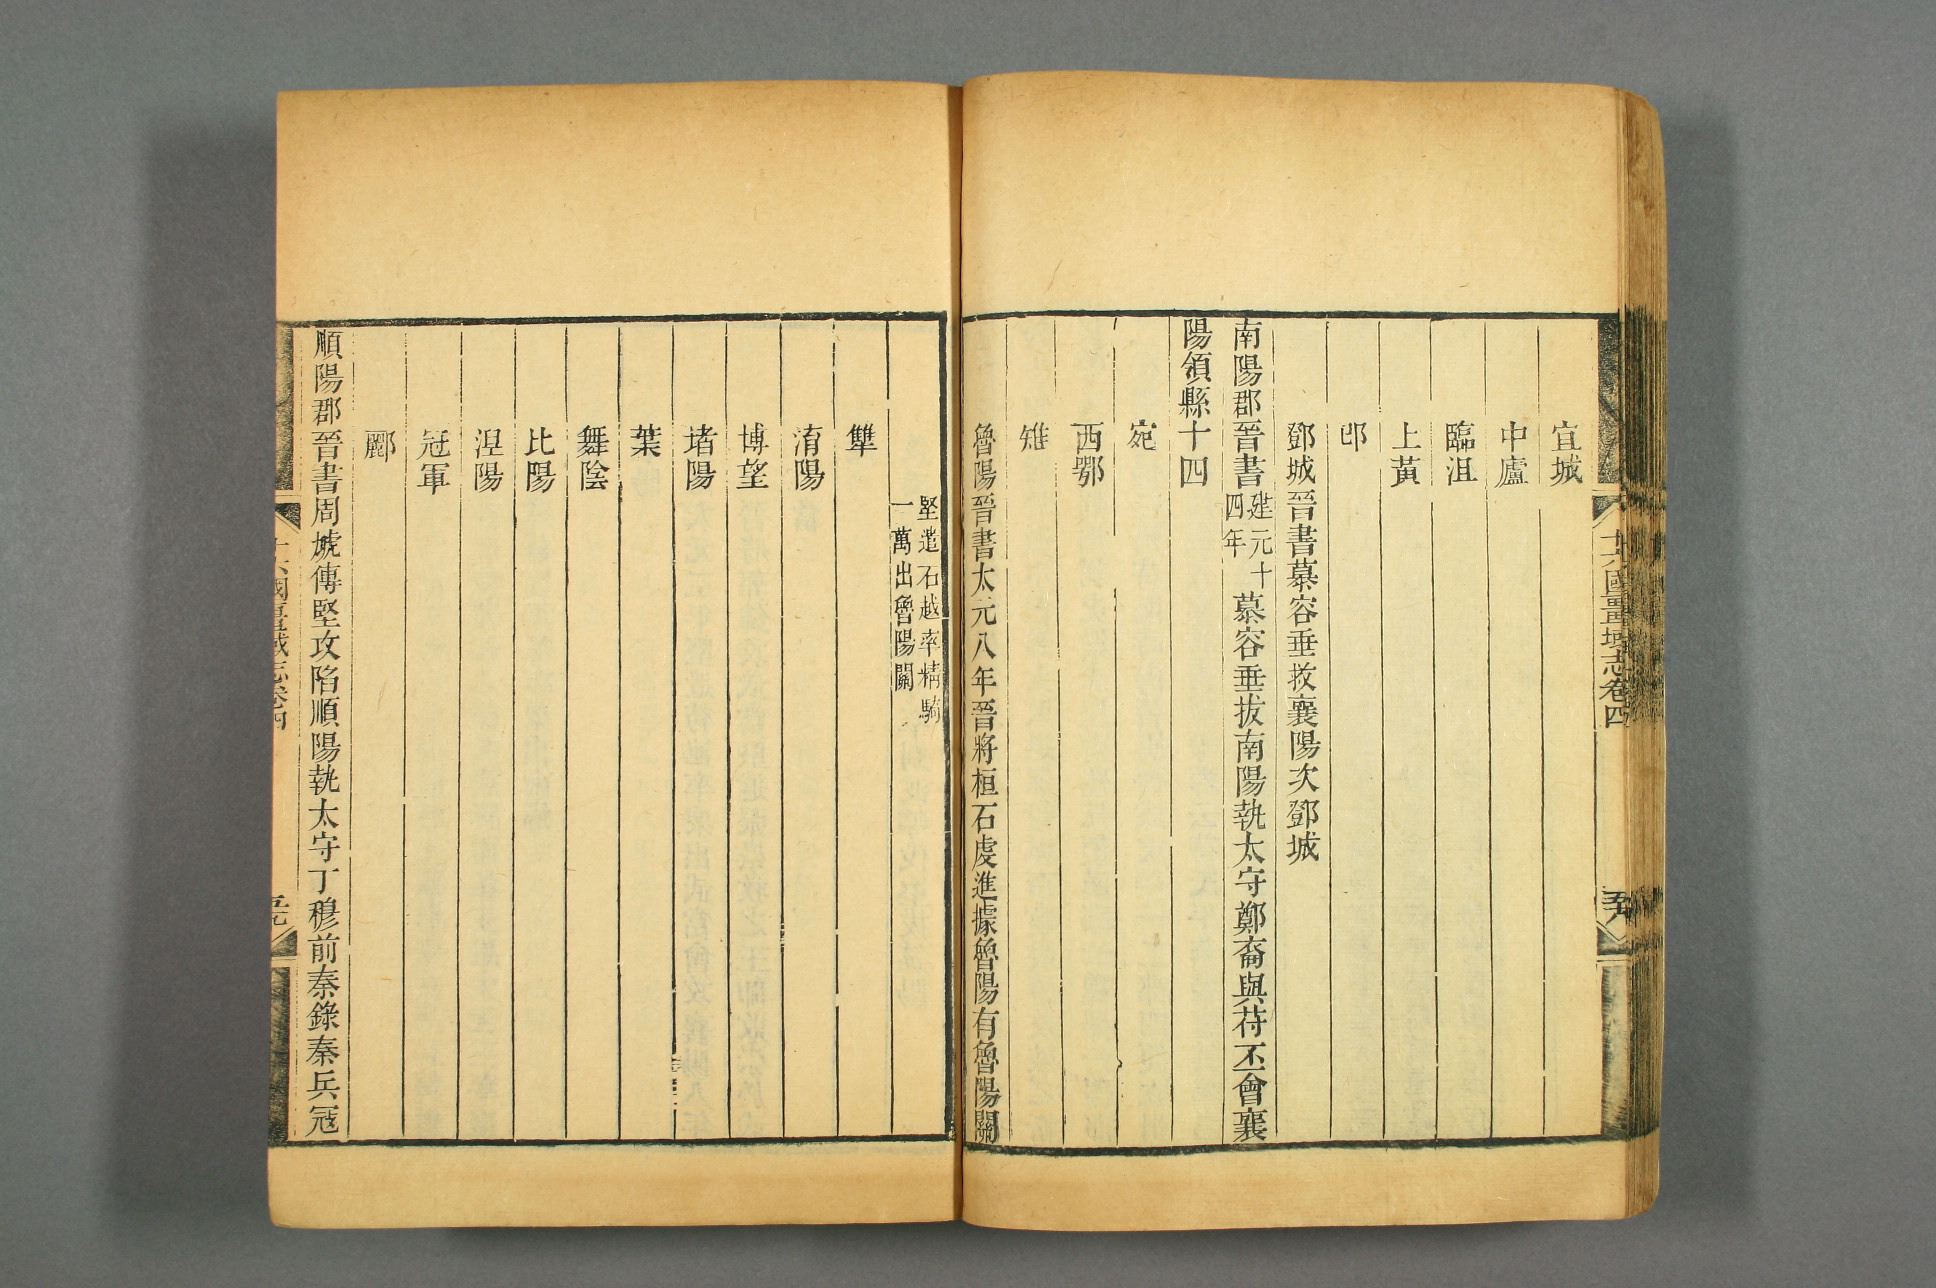 十六國畺域志卷四
宜城
中廬
臨沮
上黃
邔
鄧城晉書慕容垂拔襄陽次鄧城
南陽郡晉書建元十四年慕容垂拔南陽執太守鄭裔與苻丕會襄
陽領縣十四
宛
西鄂
雉
魯陽晉書太元八年晉將桓石虔進據魯陽有魯陽關
堅遣石越率精騎
一萬出魯陽關
犨
淯陽
博望
堵陽
葉
舞陰
比陽
涅陽
冠軍
酈
順陽郡晉書周虓傳堅攻陷順陽執太守丁穆前秦錄秦兵寇
十六國畺域志卷四